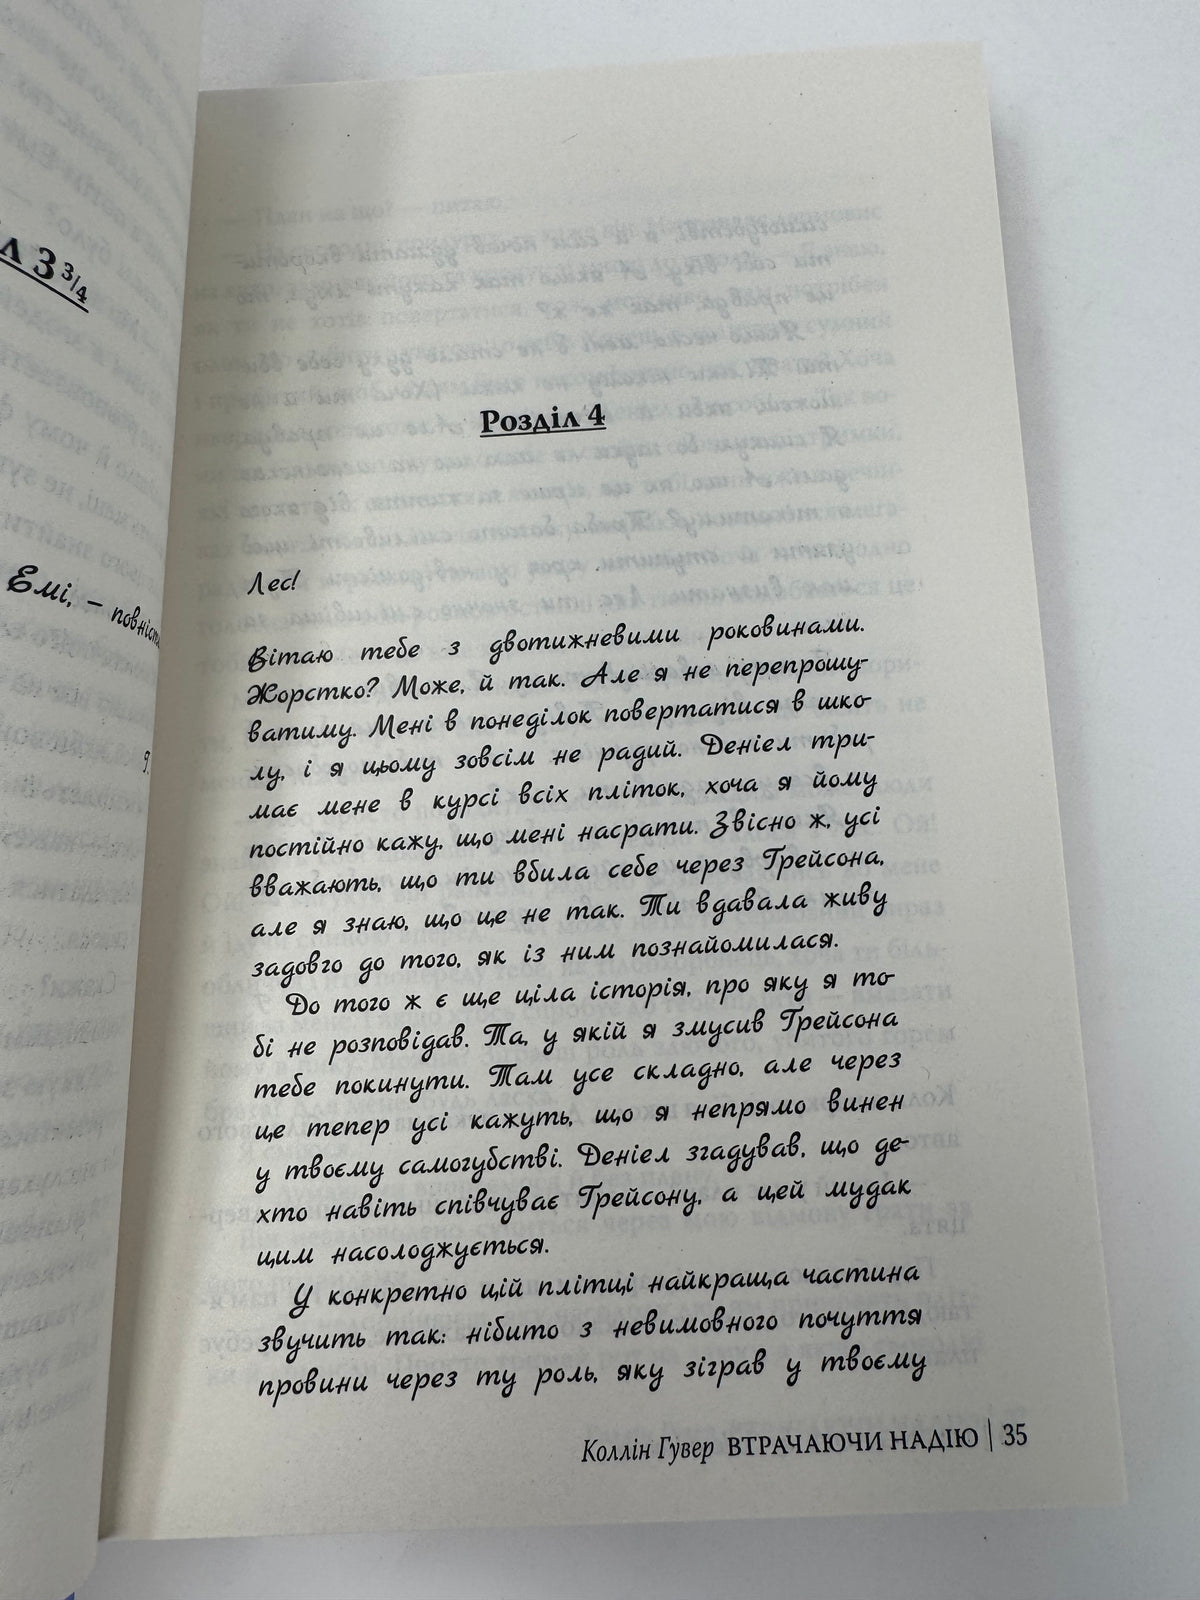 л 3 3/4
Емі, –
Розділ 4
Лес!
Вітаю тебе з двотижневими роковинами.
Жорстко? Може, й так. Але я не перепрошу-
ватиму. Мені в понеділок повертатися в шко-
лу, і я цьому зовсім не радий. Деніел три-
має мене в курсі всіх пліток, хоча я йому
постійно кажу, що мені насрати. Звісно ж, усі
вважають, що ти вбила себе через Ґрейсона,
але я знаю, що це не так. Ти вдавала живу
задовго до того, як із ним познайомилася.
До того ж є ще ціла історія, про яку я то-
бі не розповідав. Та, у якій я змусив Ґрейсона
тебе покинути. Там усе складно, але через
це тепер усі кажуть, що я непрямо винен
у твоєму самогубстві. Деніел згадував, що де-
хто навіть співчуває Ґрейсону, а цей мудак
цим насолоджується.
У конкретно цій плітці найкраща частина
звучить так: нібито з невимовного почуття
провини через ту роль, яку зіграв у твоєму
Коллін Гувер ВТРАЧАЮЧИ НАДІЮ | 35